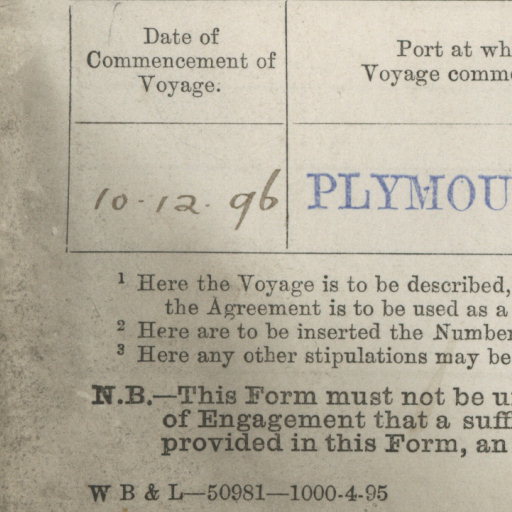 Date of
Commencement of
Voyage.
Port at wh
Voyage comme
10-12.96
PLYMOU
1 Here the Voyage is to be described,
the Agreement is to be used as a
2 Here are to be inserted the Number
3 Here any other stipulations may be
N.B.—This Form must not be u
of Engagement that a suff
provided in this Form, an
W B & L—50981—1000-4-95